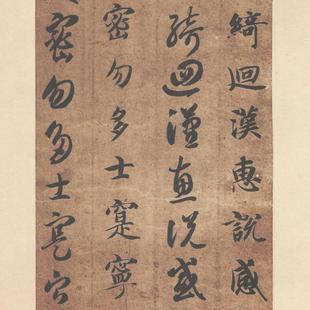 綺迴漢惠說感
綺迴漢惠說感
密勿多士寔寧
密勿多士寔